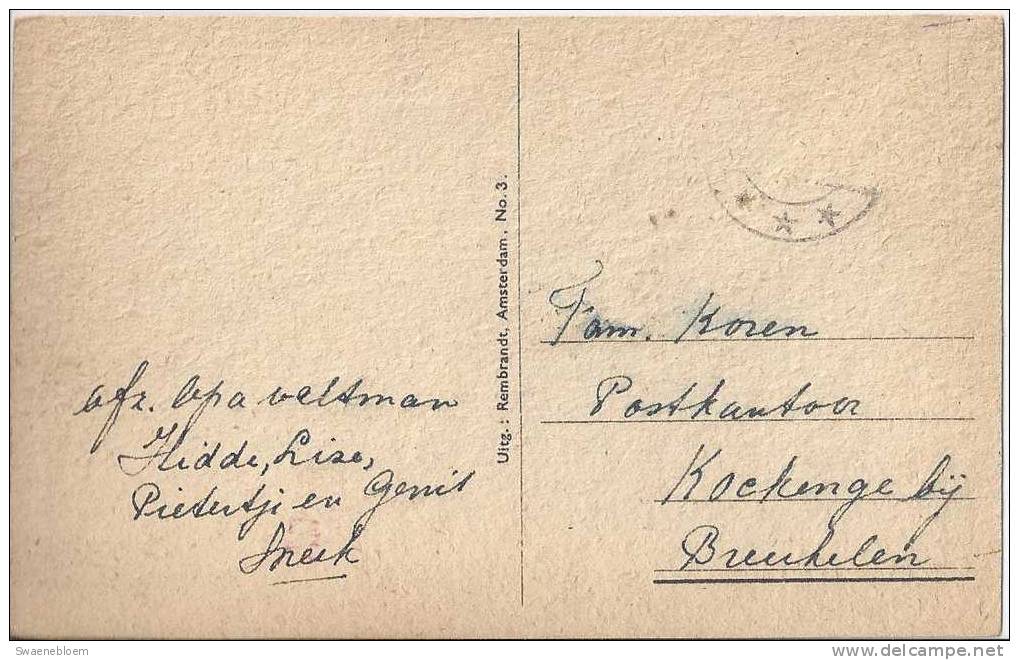 afz. Opa Veltman
Hidde, Lize,
Pietertje en Gerrit
Sneek
Uitg.: Rembrandt, Amsterdam. No. 3.
Fam. Koren
Postkantoor
Kockenge bij
Breukelen
Swaenebloem
www.delcampe.net